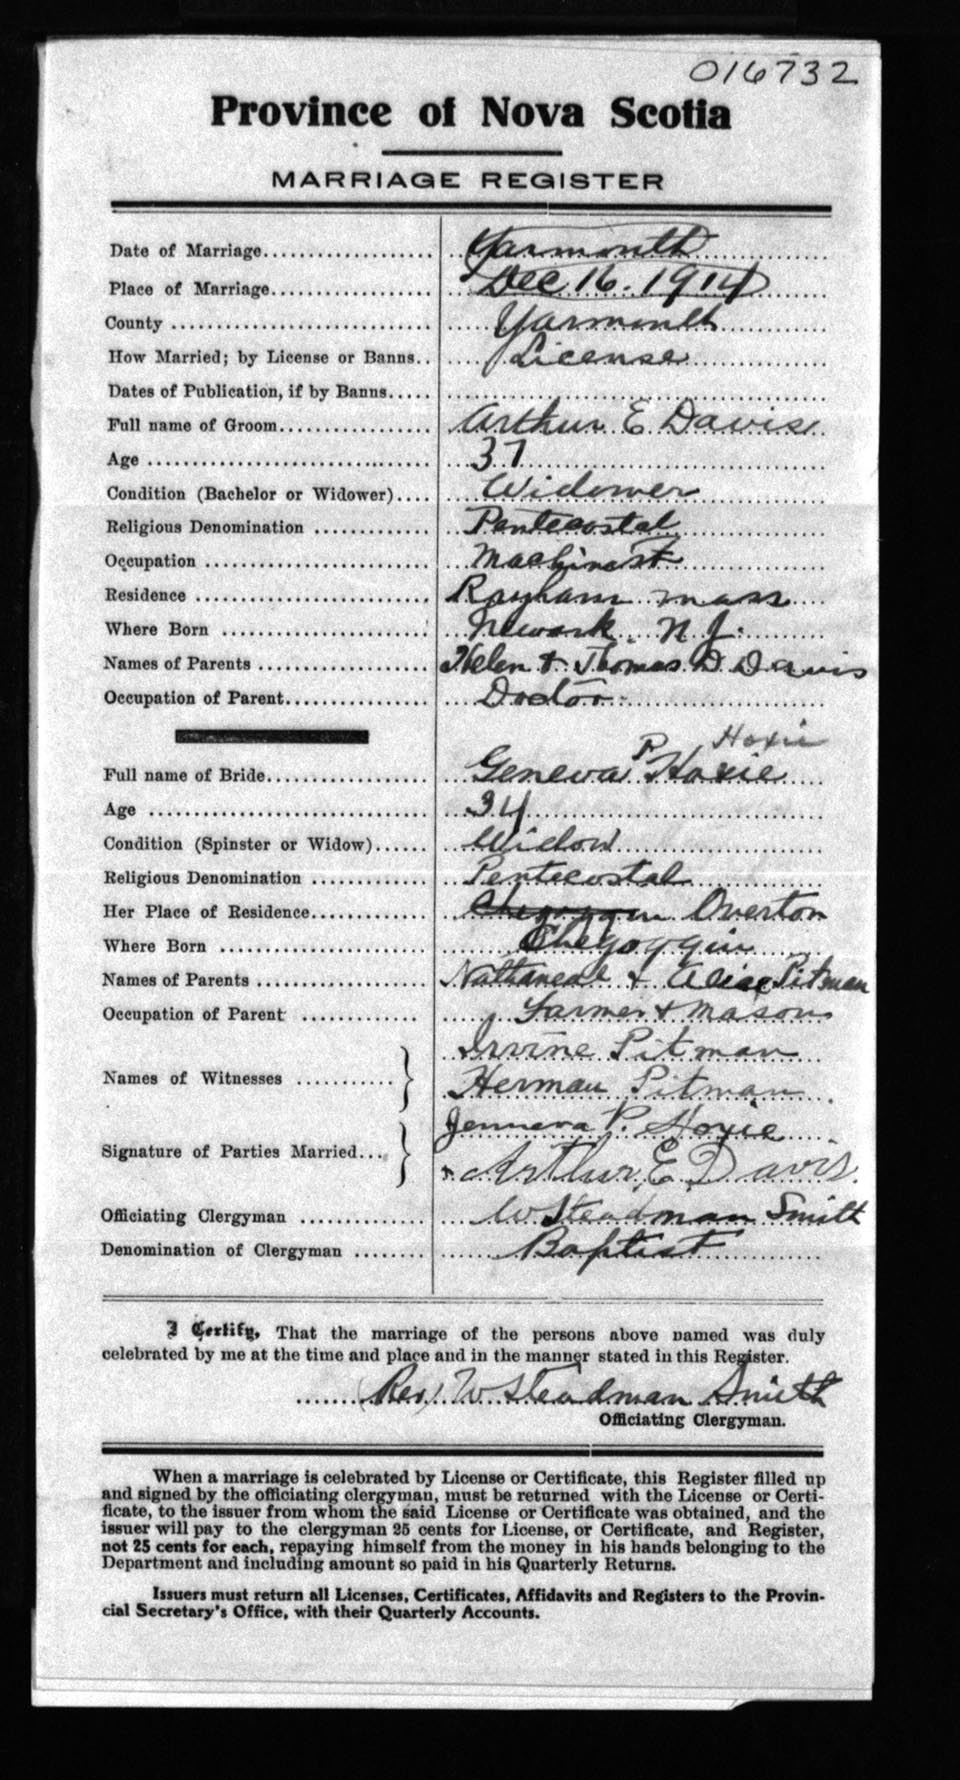 016732
Province of Nova Scotia
MARRIAGE REGISTER
Date of Marriage.................... Yarmouth
Place of Marriage................... Dec 16. 1914
County .............................. Yarmouth
How Married; by License or Banns.. License
Dates of Publication, if by Banns.....
Full name of Groom................. Arthur E Davis
Age ................................. 37
Condition (Bachelor or Widower).... Widower
Religious Denomination ............. Pentecostal
Occupation .......................... Machinist
Residence ........................... Raynham mass
Where Born ........................ Newark. N J.
Names of Parents ................... Helen & Thomas D Davis
Occupation of Parent................ Doctor
Hoxie
Full name of Bride.................. Geneva P Hoxie
Age ................................. 34
Condition (Spinster or Widow)...... Widow
Religious Denomination ............. Pentecostal
Her Place of Residence............. Chegoggin Overton
Where Born ........................ Chegoggin
Names of Parents ................... Nathaneal & Alice Pitman
Occupation of Parent ............. Farmer & Mason
Irvine Pitman
Names of Witnesses ............ Herman Pitman
Jenneva P. Hoxie
Signature of Parties Married.... Arthur E. Davis
Officiating Clergyman .............. W Steadman Smith
Denomination of Clergyman ........ Baptist
I Certify, That the marriage of the persons above named was duly
celebrated by me at the time and place and in the manner stated in this Register.
Rev W Steadman Smith
Officiating Clergyman.
When a marriage is celebrated by License or Certificate, this Register filled up
and signed by the officiating clergyman, must be returned with the License or Certi-
ficate, to the issuer from whom the said License or Certificate was obtained, and the
issuer will pay to the clergyman 25 cents for License, or Certificate, and Register,
not 25 cents for each, repaying himself from the money in his hands belonging to the
Department and including amount so paid in his Quarterly Returns.
Issuers must return all Licenses, Certificates, Affidavits and Registers to the Provin-
cial Secretary's Office, with their Quarterly Accounts.